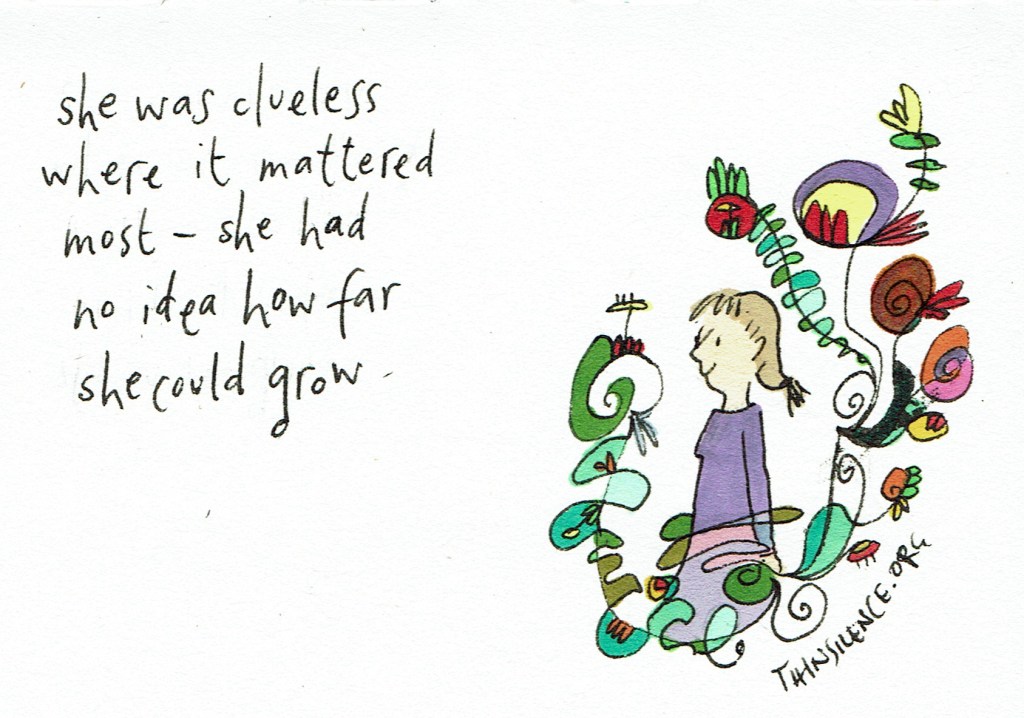 she was clueless
where it mattered
most – she had
no idea how far
she could grow
THINSILENCE.ORG